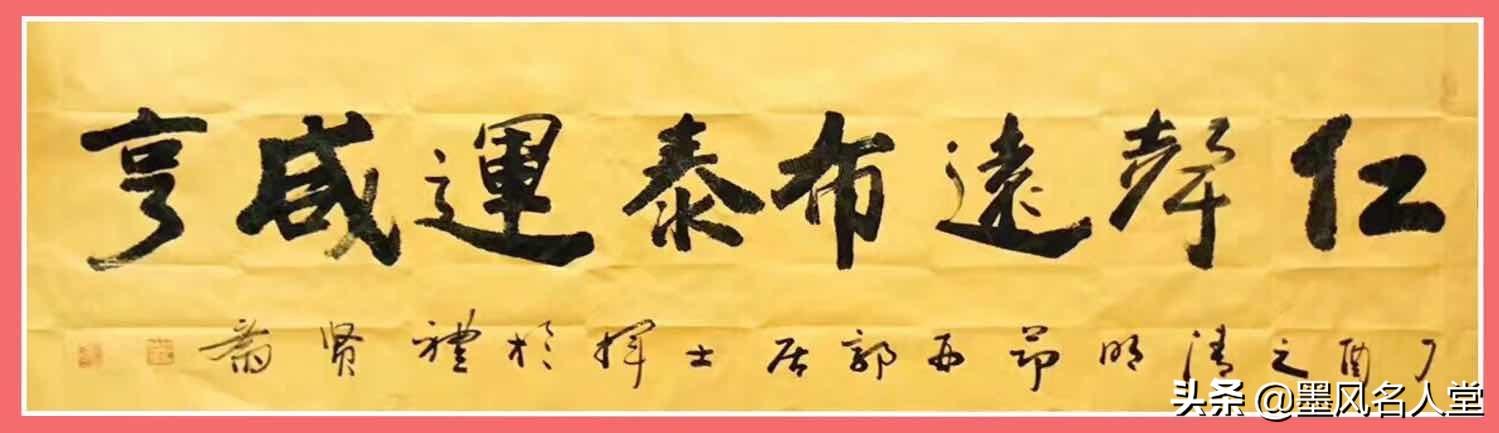 仁聲遠布泰運咸亨
丁酉之清明節西郭居士揮於禮賢齋
头条 @墨风名人堂